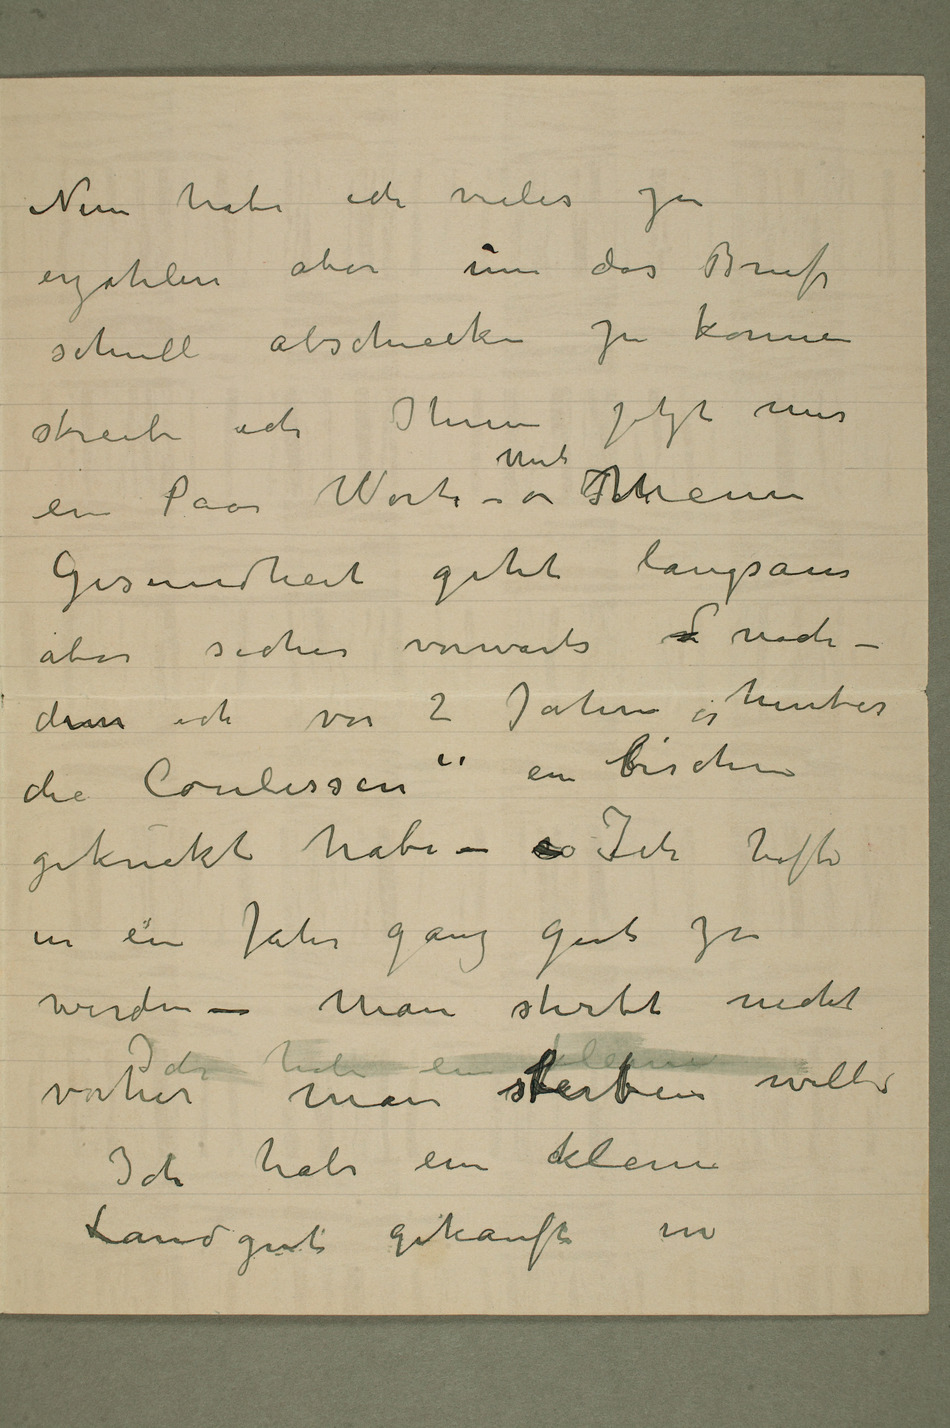 Nun habe ich vieles zu
erzahlen aber um das Brief
schnell abschiecken zu konnen
skreibe ich Ihnen jetzt nur
ein Paar Worte –
Mit
Meine
Gesundheit geht langsam
aber sicher vorwarts nach-
dem ich vor 2 Jahren „hinter
die Coulissen" ein bischen
gekuckt habe – Ich hoffe
in ein Jahr ganz gut zu
werden – Man stirbt nicht
Ich habe ein kleine
vorher man sterben will
Ich habe ein kleine
Landgut gekauft in